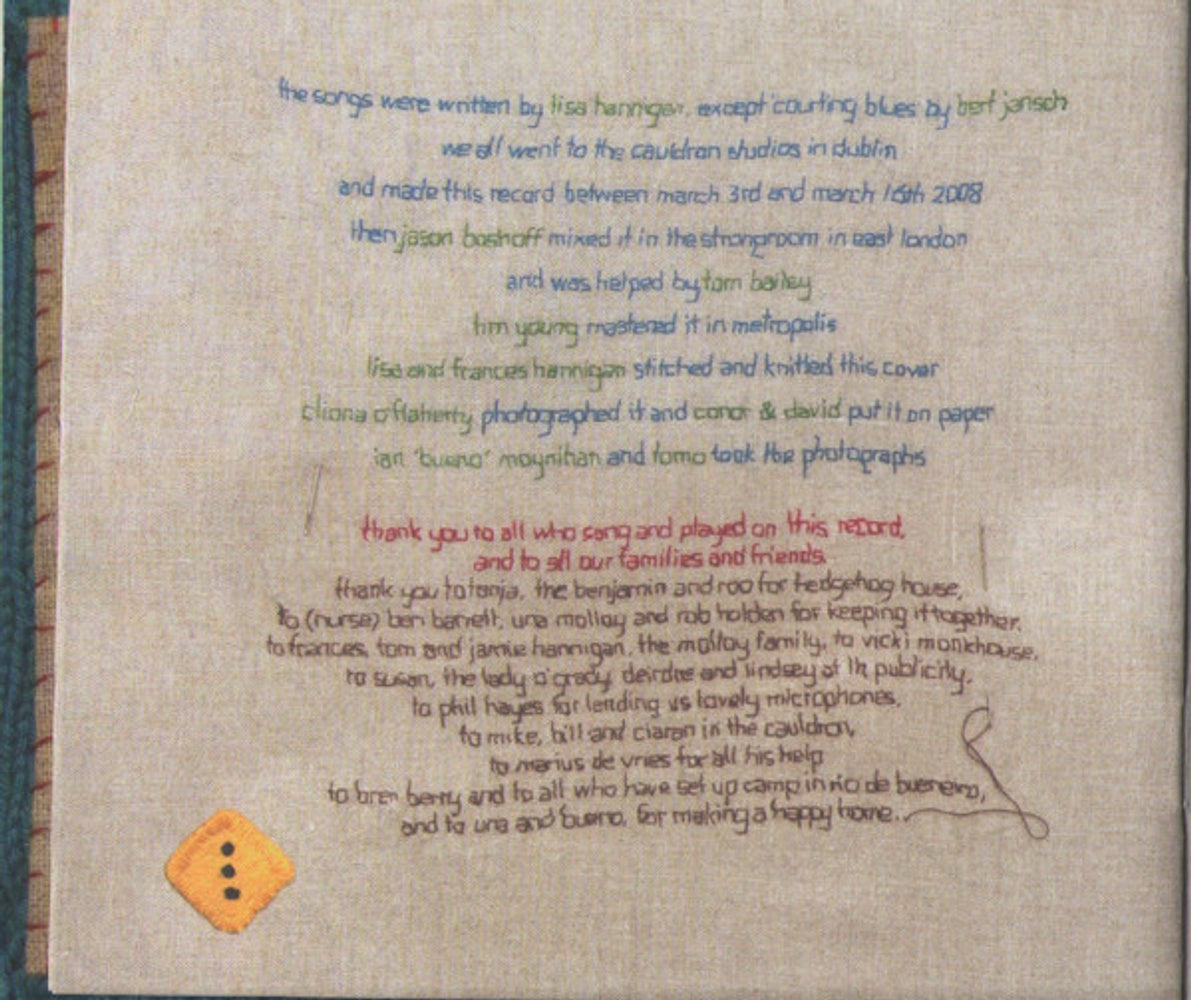 the songs were written by lisa hannigan, except 'courting blues by bert jansch
we all went to the cauldron studios in dublin
and made this record between march 3rd and march 16th 2008
then jason boshoff mixed it in the strongroom in east london
and was helped by tom bailey
tim young mastered it in metropolis
lisa and frances hannigan stitched and knitted this cover
cliona o'flaherty photographed it and conor & david put it on paper
ian 'bueno' moynihan and tomo took the photographs
thank you to all who sang and played on this record,
and to all our families and friends.
thank you to tanja, the benjamin and roo for hedgehog house,
to (nurse) ben barrett, una molloy and rob holden for keeping it together,
to frances, tom and jamie hannigan, the molloy family, to vicki monkhouse,
to susan, the lady o'grady, deirdre and lindsey at lh publicity,
to phil hayes for lending us lovely microphones,
to mike, bill and ciaran in the cauldron,
to marius de vries for all his help
to bren berry and to all who have set up camp in rio de bueneiro,
and to una and bueno, for making a happy home..